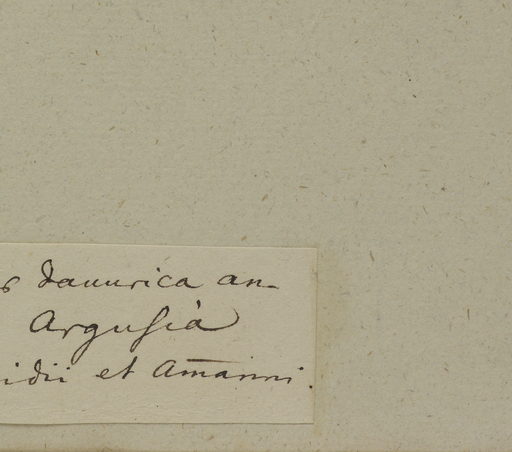 s dauurica an-
Argusià
idii et Am̄anni.